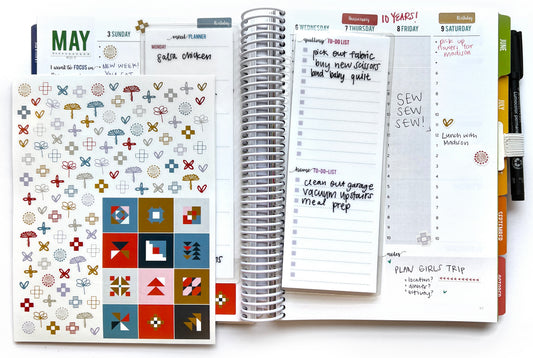 MAY
3 SUNDAY
I want to FOCUS on...
NEW WEEK!
meal PLANNER
MONDAY
salsa chicken
Birthday
6 WEDNESDAY
Anniversary
7 THURSDAY
10 YEARS!
8 FRIDAY
Birthday
9 SATURDAY
quilting TO-DO LIST
pick out fabric
buy new scissors
bad baby quilt
SEW
SEW
SEW!
pick up
flowers for
madison
Lunch with
Madison
home TO-DO LIST
clean out garage
vacuum upstairs
meal prep
notes
PLAN GIRLS TRIP
• location?
• dinner?
JUNE
JULY
SEPTEMBER
OCTOBER